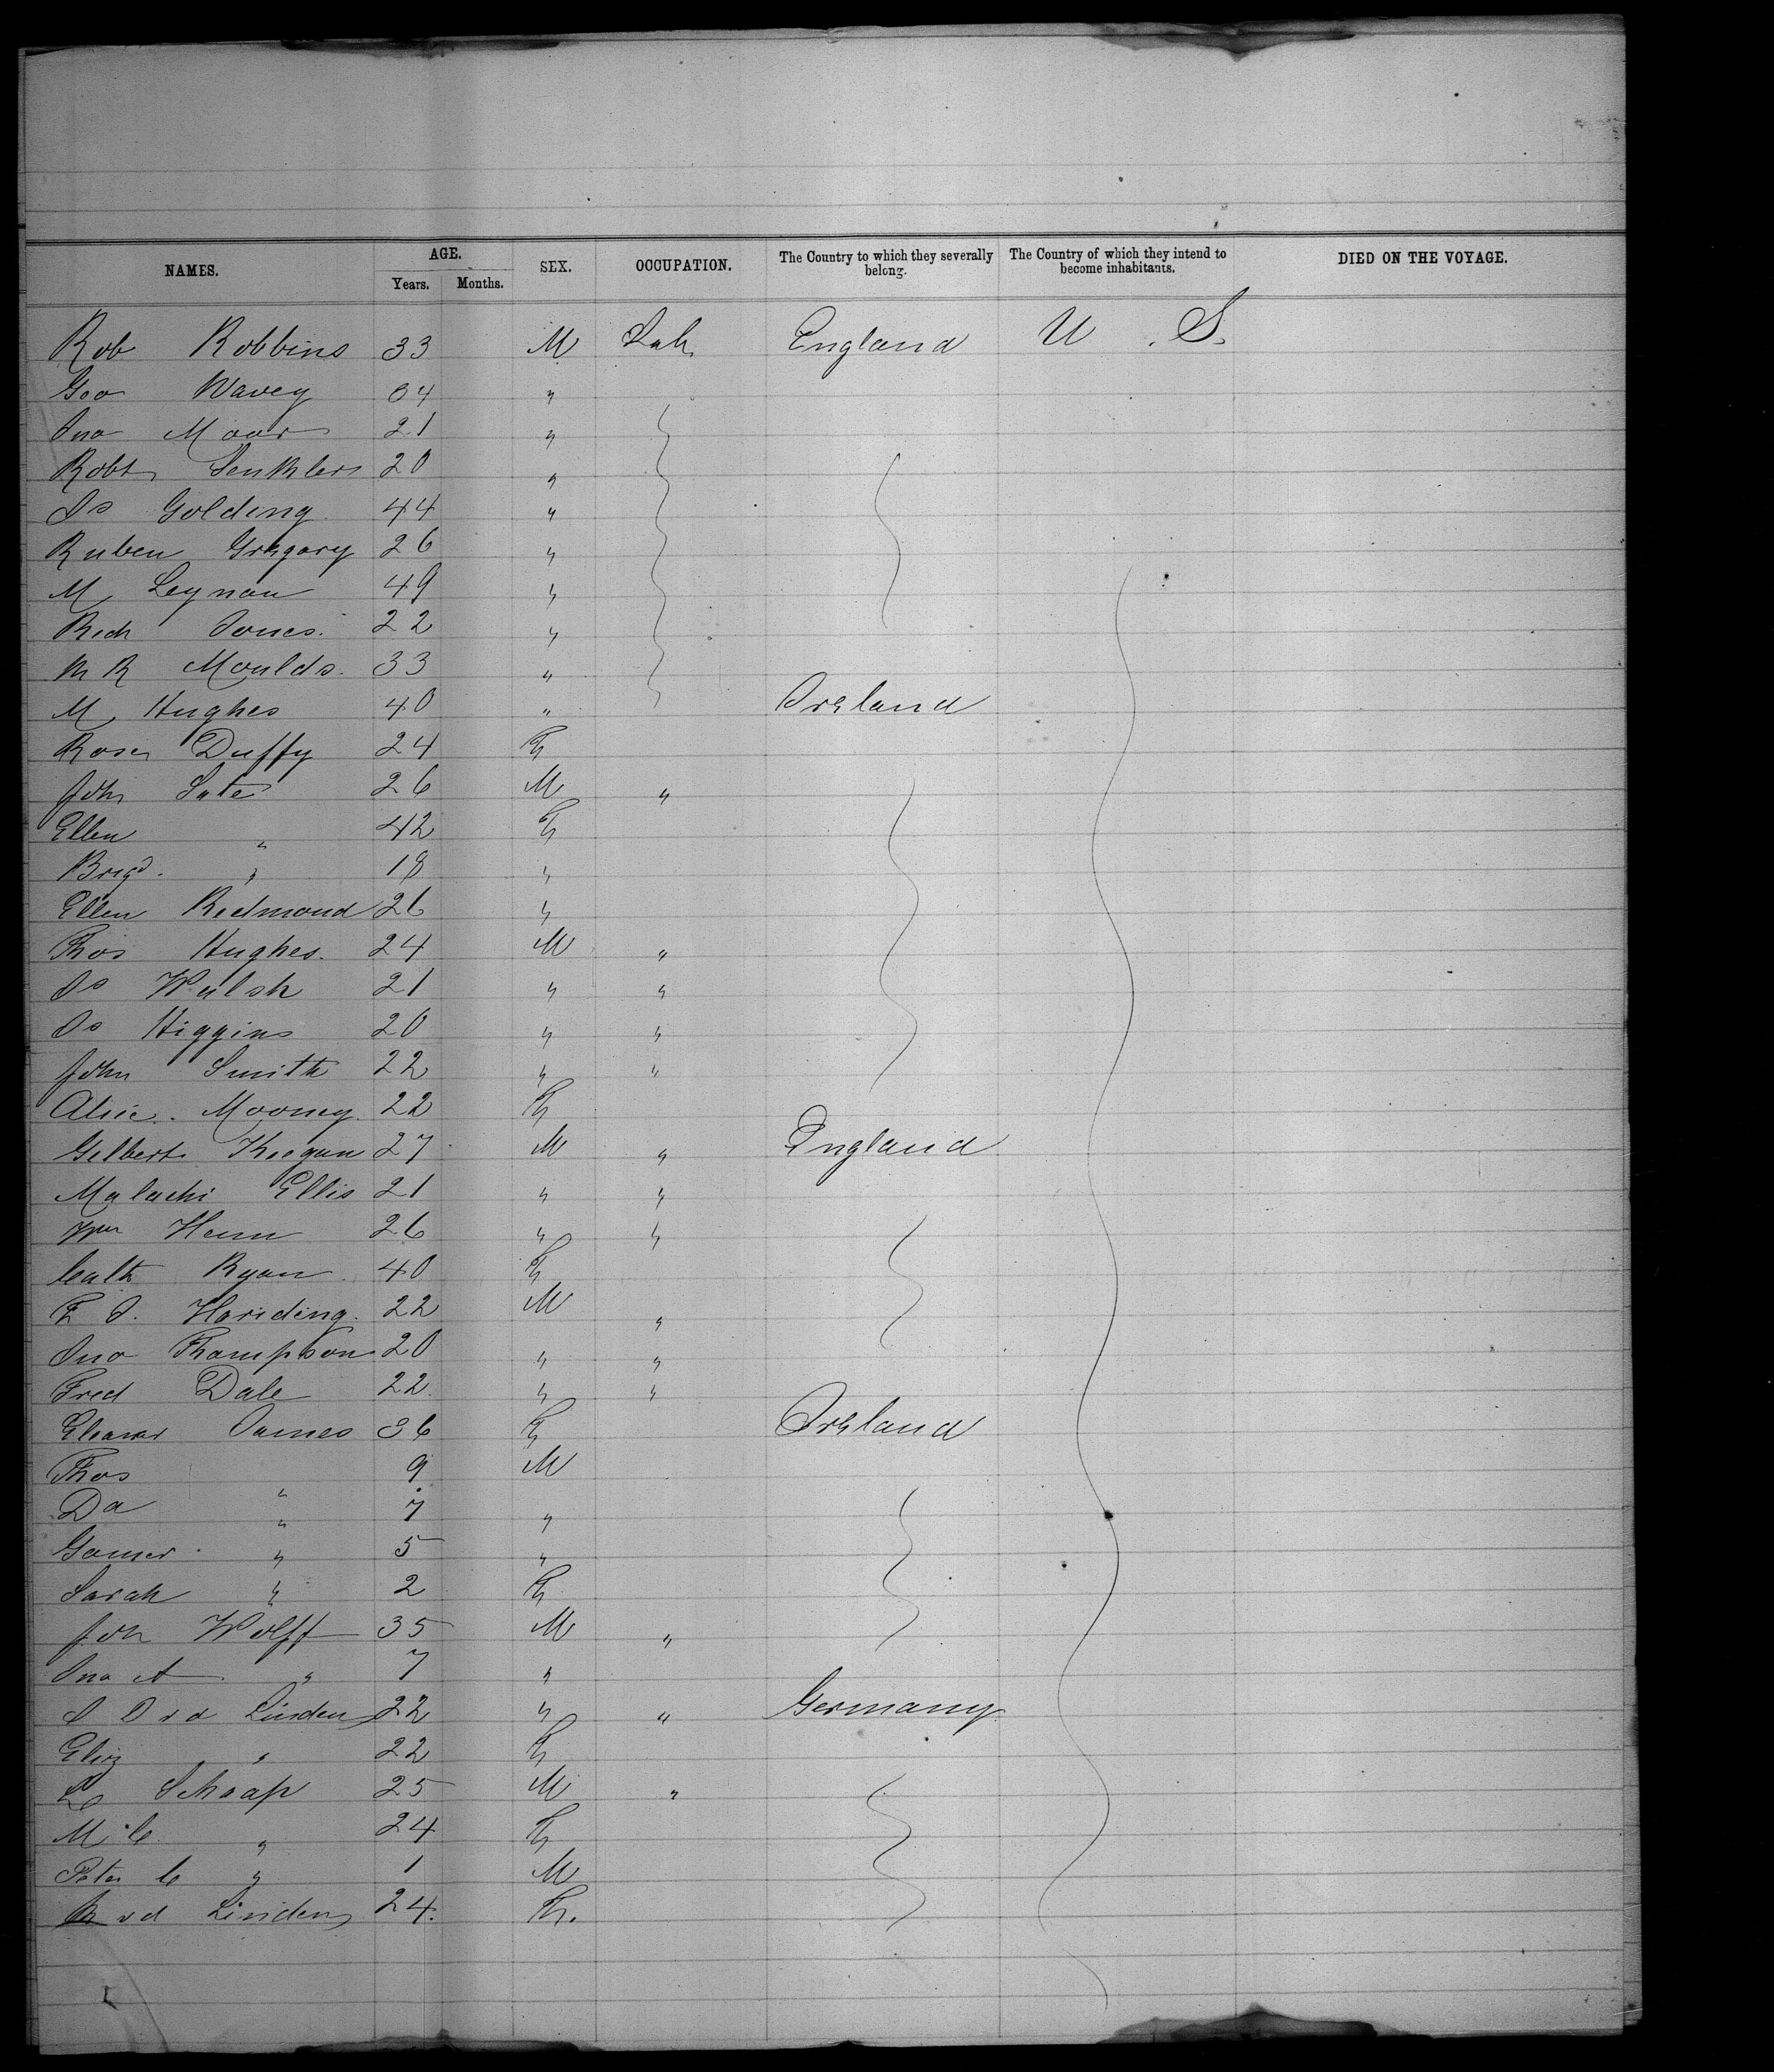 NAMES. AGE. Years. Months. SEX. OCCUPATION. The Country to which they severally belong. The Country of which they intend to become inhabitants. DIED ON THE VOYAGE.
Rob Robbins 33 M Lab England U. S.
Geo Wavey 34 "
Jno Moor 21 "
Robt 20 "
Js Golding 44 "
Ruben Gregory 26 "
M Leynan 49 "
Rich Jones. 22 "
M R Moulds. 33 "
M Hughes 40 " Ireland
Rose Duffy 24 F
John Sate 26 M "
Ellen " 42 F
Brigd. " 18 "
Ellen Redmond 26 "
Thos Hughes. 24 M "
Js Walsh 21 " "
Js Higgins 20 " "
John Smith 22 " "
Alice. Mooney. 22 F
Gilbert Keegan 27 M " England
Malachi Ellis 21 " "
Wm Henn 26 " "
Cath Ryan 40 F
F J. Hariding. 22 M "
Jno Thompson 20 " "
Fred Dale 22 " "
Eleanor James 36 F Ireland
Thos " 9 M
Da " 7 "
Gomer " 5 "
Sarah " 2 F
Joh Wolff 35 M "
Jno A " 7 "
Linden 22 " " Germany
Eliz " 22 F
Schaap 25 M "
M C " 24 F
Peter C " 1 M
v d Linden 24. F.